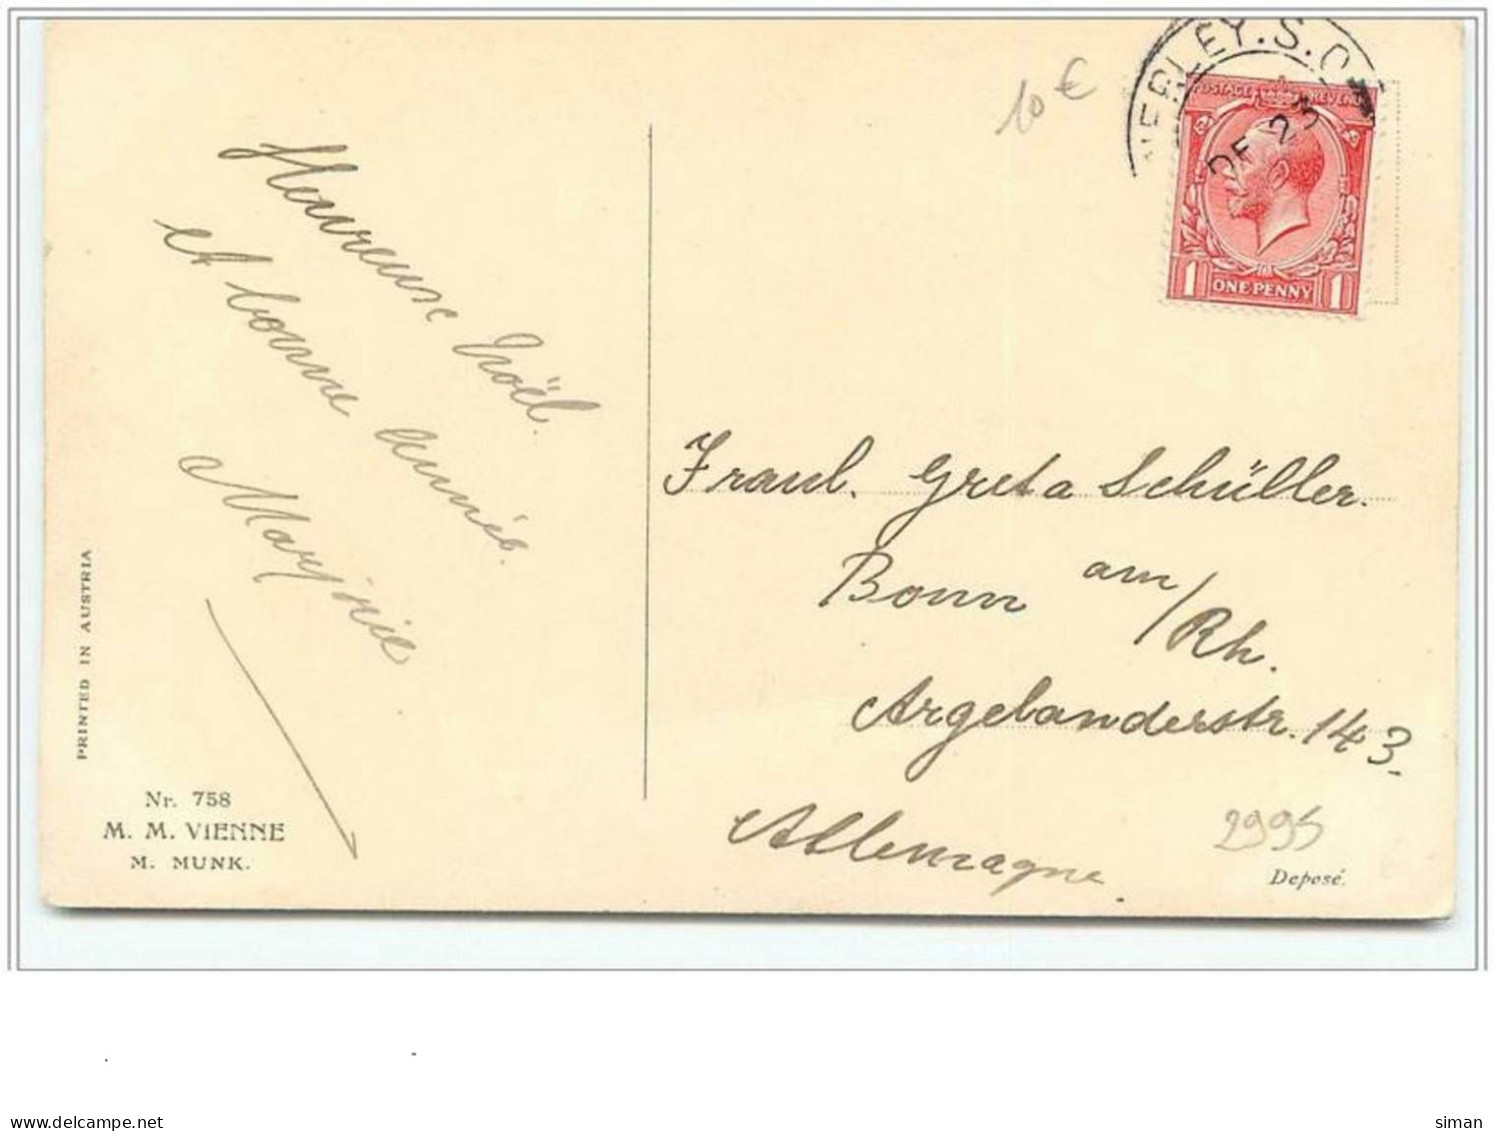 10 €
ERLEY.S.O
DE 23
POSTAGE REVENUE
1 ONE PENNY 1
Heureuse Noël
et bonne année.
Marjorie
Fraul. Greta Schüller.
Bonn am/Rh.
Argelanderstr. 143.
Allemagne
2995
PRINTED IN AUSTRIA
Nr. 758
M. M. VIENNE
M. MUNK.
Deposé.
www.delcampe.net
siman